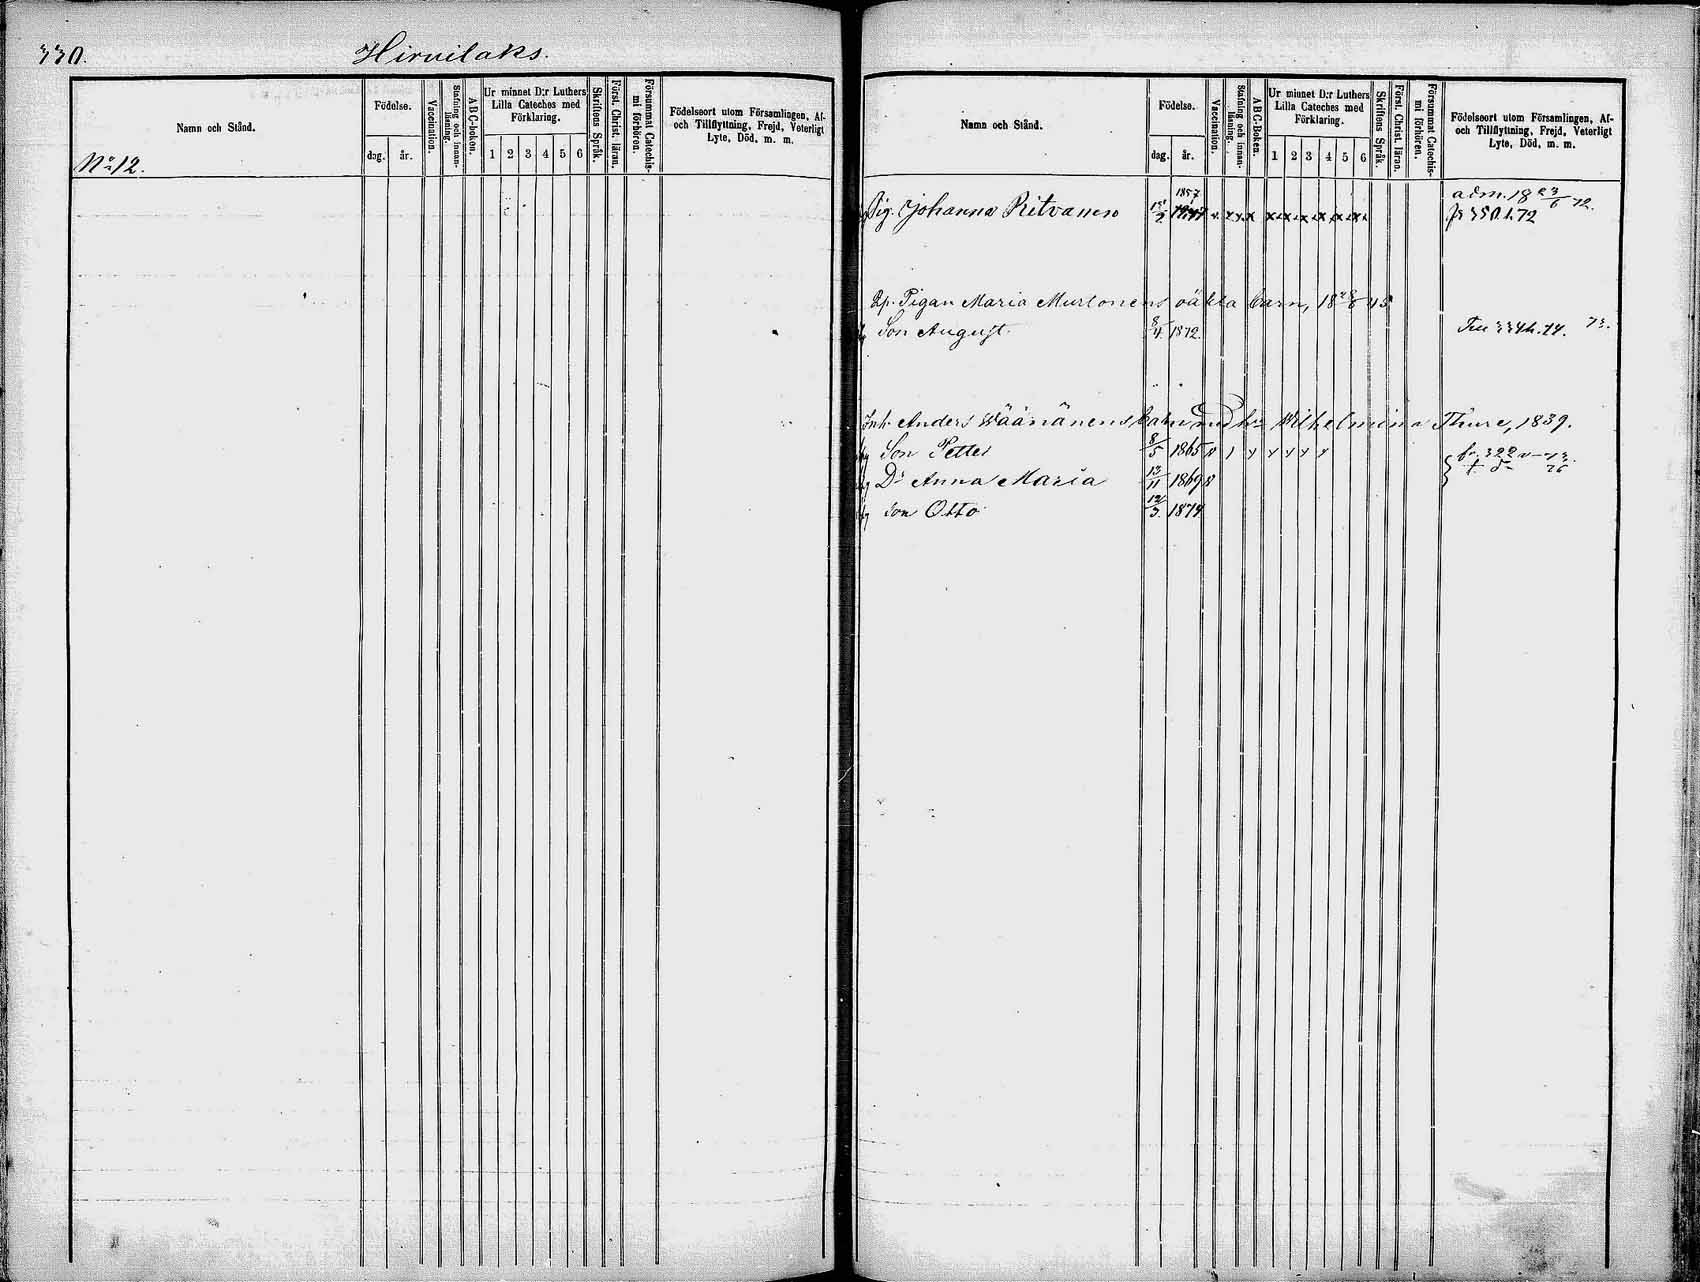 330.
Hirvilaks.
Namn och Stånd.
Födelse.
dag.
år.
Vaccination.
Stafning och innanläsning.
ABC-boken.
Ur minnet D:r Luthers Lilla Cateches med Förklaring.
1 2 3 4 5 6
Skriftens Språk.
Först. Christ. läran.
Försummat Catechismi förhören.
Födelseort utom Församlingen, Af- och Tillflyttning, Frejd, Veterligt Lyte, Död, m. m.
No 12.
Namn och Stånd.
Födelse.
dag.
år.
Vaccination.
Stafning och innanläsning.
ABC-Boken.
Ur minnet D:r Luthers Lilla Cateches med Förklaring.
1 2 3 4 5 6
Skriftens Språk.
Först. Christ. läran.
Försummat Catechismi förhören.
Födelseort utom Församlingen, Af- och Tillflyttning, Frejd, Veterligt Lyte, Död, m. m.
1857
adm. 18 23/6 72.
Pig. Johanna Ritvanen
fr 350.1.72
Pigan Maria Murtonens oäkta barn, 18 45
Son August. 8/4. 1872. 73.
Inh. Anders Wäänänens barn med h: Wilhelmina Thure, 1839.
Son Petter 8/5 1865
D:r Anna Maria 13/11 1869
76
Son Otto 12/3. 1874